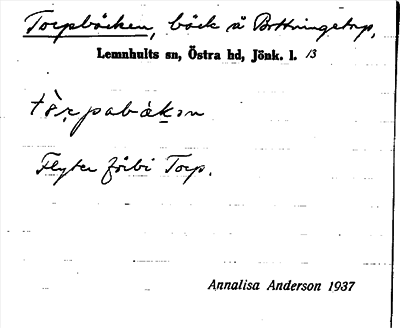 Torpbäcken, bäck å Bottningstorp,
Lemnhults sn, Östra hd, Jönk. l. 13
Flyter förbi Torp.
Annalisa Anderson 1937